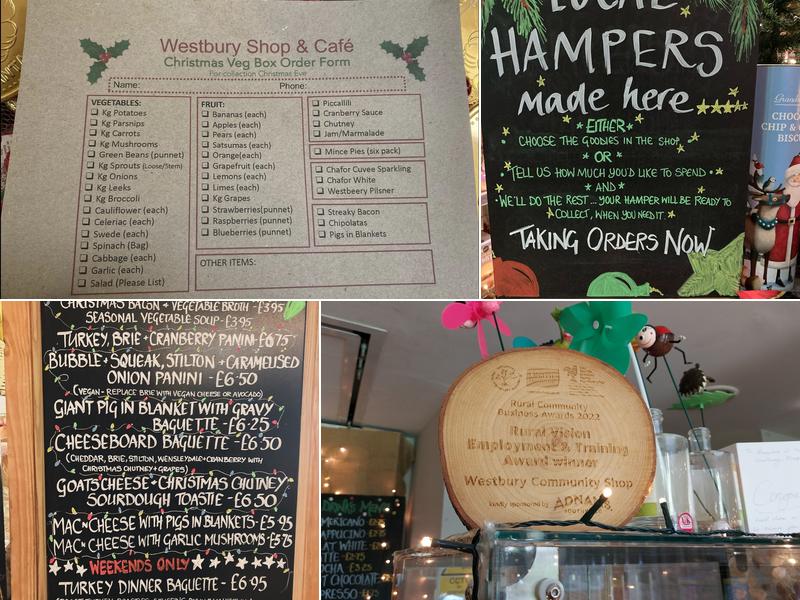 Westbury Shop & Café
Christmas Veg Box Order Form
For collection Christmas Eve
Name: Phone:
VEGETABLES:
Kg Potatoes
Kg Parsnips
Kg Carrots
Kg Mushrooms
Green Beans (punnet)
Kg Sprouts (Loose/Stem)
Kg Onions
Kg Leeks
Kg Broccoli
Cauliflower (each)
Celeriac (each)
Swede (each)
Spinach (Bag)
Cabbage (each)
Garlic (each)
Salad (Please List)
FRUIT:
Bananas (each)
Apples (each)
Pears (each)
Satsumas (each)
Orange(each)
Grapefruit (each)
Lemons (each)
Limes (each)
Kg Grapes
Strawberries(punnet)
Raspberries (punnet)
Blueberries (punnet)
Piccallili
Cranberry Sauce
Chutney
Jam/Marmalade
Mince Pies (six pack)
Chafor Cuvee Sparkling
Chafor White
Westbeery Pilsner
Streaky Bacon
Chipolatas
Pigs in Blankets
OTHER ITEMS:
LOCAL
HAMPERS
made here
EITHER
CHOOSE THE GOODIES IN THE SHOP
OR
TELL US HOW MUCH YOU'D LIKE TO SPEND
AND
WE'LL DO THE REST... YOUR HAMPER WILL BE READY TO
COLLECT, WHEN YOU NEED IT.
TAKING ORDERS NOW
CHOC
CHIP &
BISC
CHRISTMAS BACON + VEGETABLE BROTH - £3.95
SEASONAL VEGETABLE SOUP - £3.95
TURKEY, BRIE + CRANBERRY PANINI - £6.75
BUBBLE + SQUEAK, STILTON + CARAMELISED
ONION PANINI - £6.50
(VEGAN - REPLACE BRIE WITH VEGAN CHEESE OR AVOCADO)
GIANT PIG IN BLANKET WITH GRAVY
BAGUETTE - £6.25
CHEESEBOARD BAGUETTE - £6.50
(CHEDDAR, BRIE, STILTON, WENSLEYDALE + CRANBERRY WITH
CHRISTMAS CHUTNEY + GRAPES)
GOATS CHEESE + CHRISTMAS CHUTNEY
SOURDOUGH TOASTIE - £6.50
MAC + CHEESE WITH PIGS IN BLANKETS - £5.95
MAC + CHEESE WITH GARLIC MUSHROOMS - £5.75
WEEKENDS ONLY
TURKEY DINNER BAGUETTE - £6.95
Rural Community
Business Awards 2022
Rural Vision
Employment & Training
Award winner
Westbury Community Shop
kindly sponsored by ADNAMS
DRINKS MENU